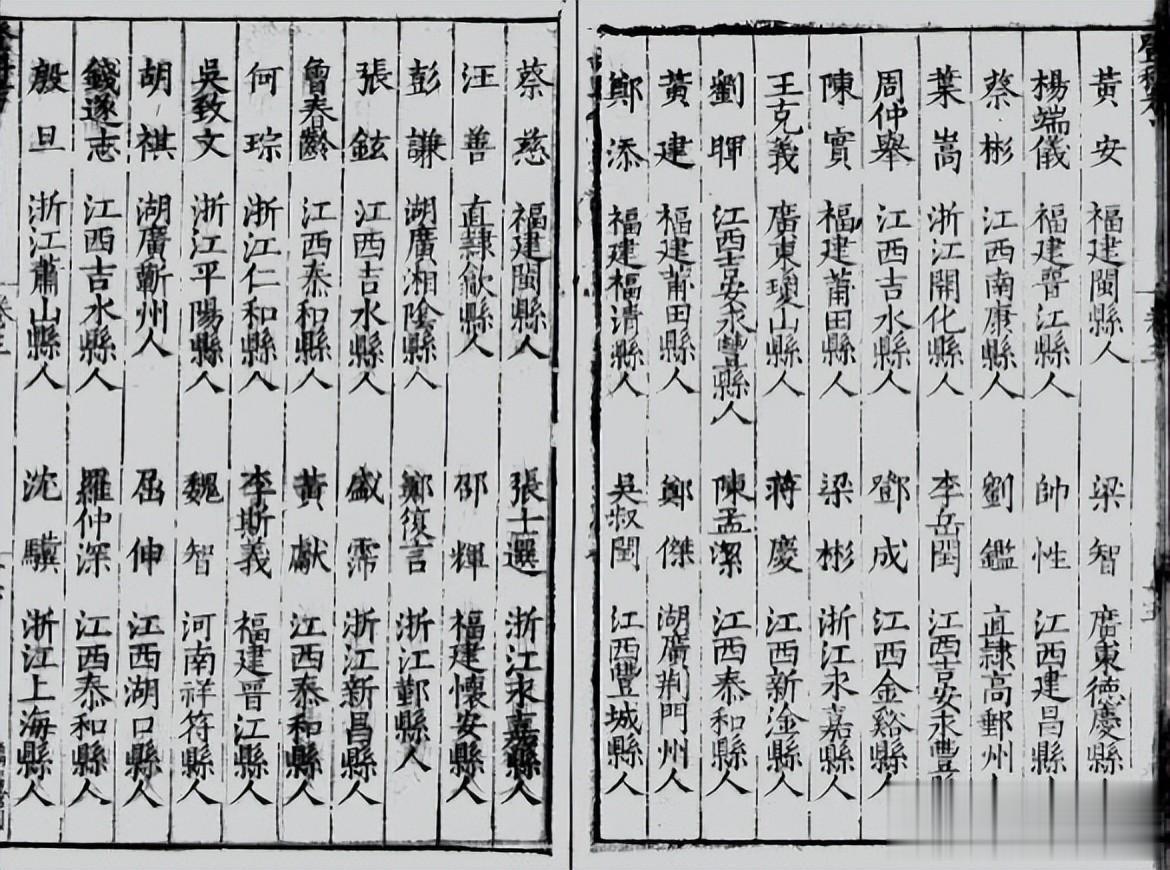 黃安 福建閩縣人 梁智 廣東德慶縣
楊端儀 福建晉江縣人 帥性 江西建昌縣
蔡彬 江西南康縣人 劉鑑 直隸高郵州人
葉嵩 浙江開化縣人 李岳閏 江西吉安永豐縣
周仲舉 江西吉水縣人 鄧成 江西金谿縣人
陳實 福建莆田縣人 梁彬 浙江永嘉縣人
王克義 廣東瓊山縣人 蔣慶 江西新淦縣人
劉睴 江西吉安永豐縣人 陳孟潔 江西泰和縣人
黃建 福建莆田縣人 鄭傑 湖廣荆門州人
鄭添 福建福清縣人 吳叔閏 江西豐城縣人
蔡慈 福建閩縣人 張士選 浙江永嘉縣人
汪善 直隸歙縣人 邵輝 福建懷安縣人
彭謙 湖廣湘陰縣人 鄭復言 浙江鄞縣人
張鉉 江西吉水縣人 盛霈 浙江新昌縣人
魯春齡 江西泰和縣人 黃獻 江西泰和縣人
何琮 浙江仁和縣人 李斯義 福建晉江縣人
吳致文 浙江平陽縣人 魏智 河南祥符縣人
胡祺 湖廣蘄州人 屈伸 江西湖口縣人
錢遂志 江西吉水縣人 羅仲深 江西泰和縣人
殷旦 浙江蕭山縣人 沈驥 浙江上海縣人